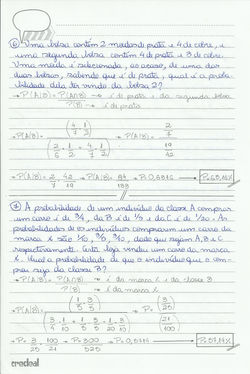 ⑥ Uma bolsa contém 2 moedas de prata e 4 de cobre, e
uma segunda bolsa contém 4 de prata e 3 de cobre.
Uma moeda é selecionada, ao acaso, de uma das
duas bolsas, sabendo que é de prata, qual é a proba-
bilidade dela ter vindo da bolsa 2?
→P(A|B) = P(A∩B) → é de prata da segunda bolsa
P(B) → é de prata
→P(A|B) = (4/7 · 1/2) P(A|B) = 2/7
(2/6 · 1/2 + 4/7 · 1/2) 19/42
→P(A|B) = 2/7 · 42/19 P(A|B) = 84/133 P = 0,6315 P = 63,15%
⑦ A probabilidade de um indivíduo da classe A comprar
um carro é de 3/4, da B é de 1/5 e da C é de 1/20. As
probabilidades de os indivíduos comprarem um carro da
marca x são 1/10, 3/5, 3/10, dado que sejam A, B e C
respectivamente. Certa loja vendeu um carro da marca
x. Qual a probabilidade de que o indivíduo que o com-
prou seja da classe B?
→P(A|B) = P(A∩B) → é da marca x da classe B
P(B) → é da marca x
→P(A|B) = (1/5 · 3/5) P = (3/25)
(3/4 · 1/10 + 1/5 · 3/5 + 1/20 · 3/10) (21/100)
→P = 3/25 · 100/21 P = 300/525 P = 0,5714 P = 57,14%
credeal